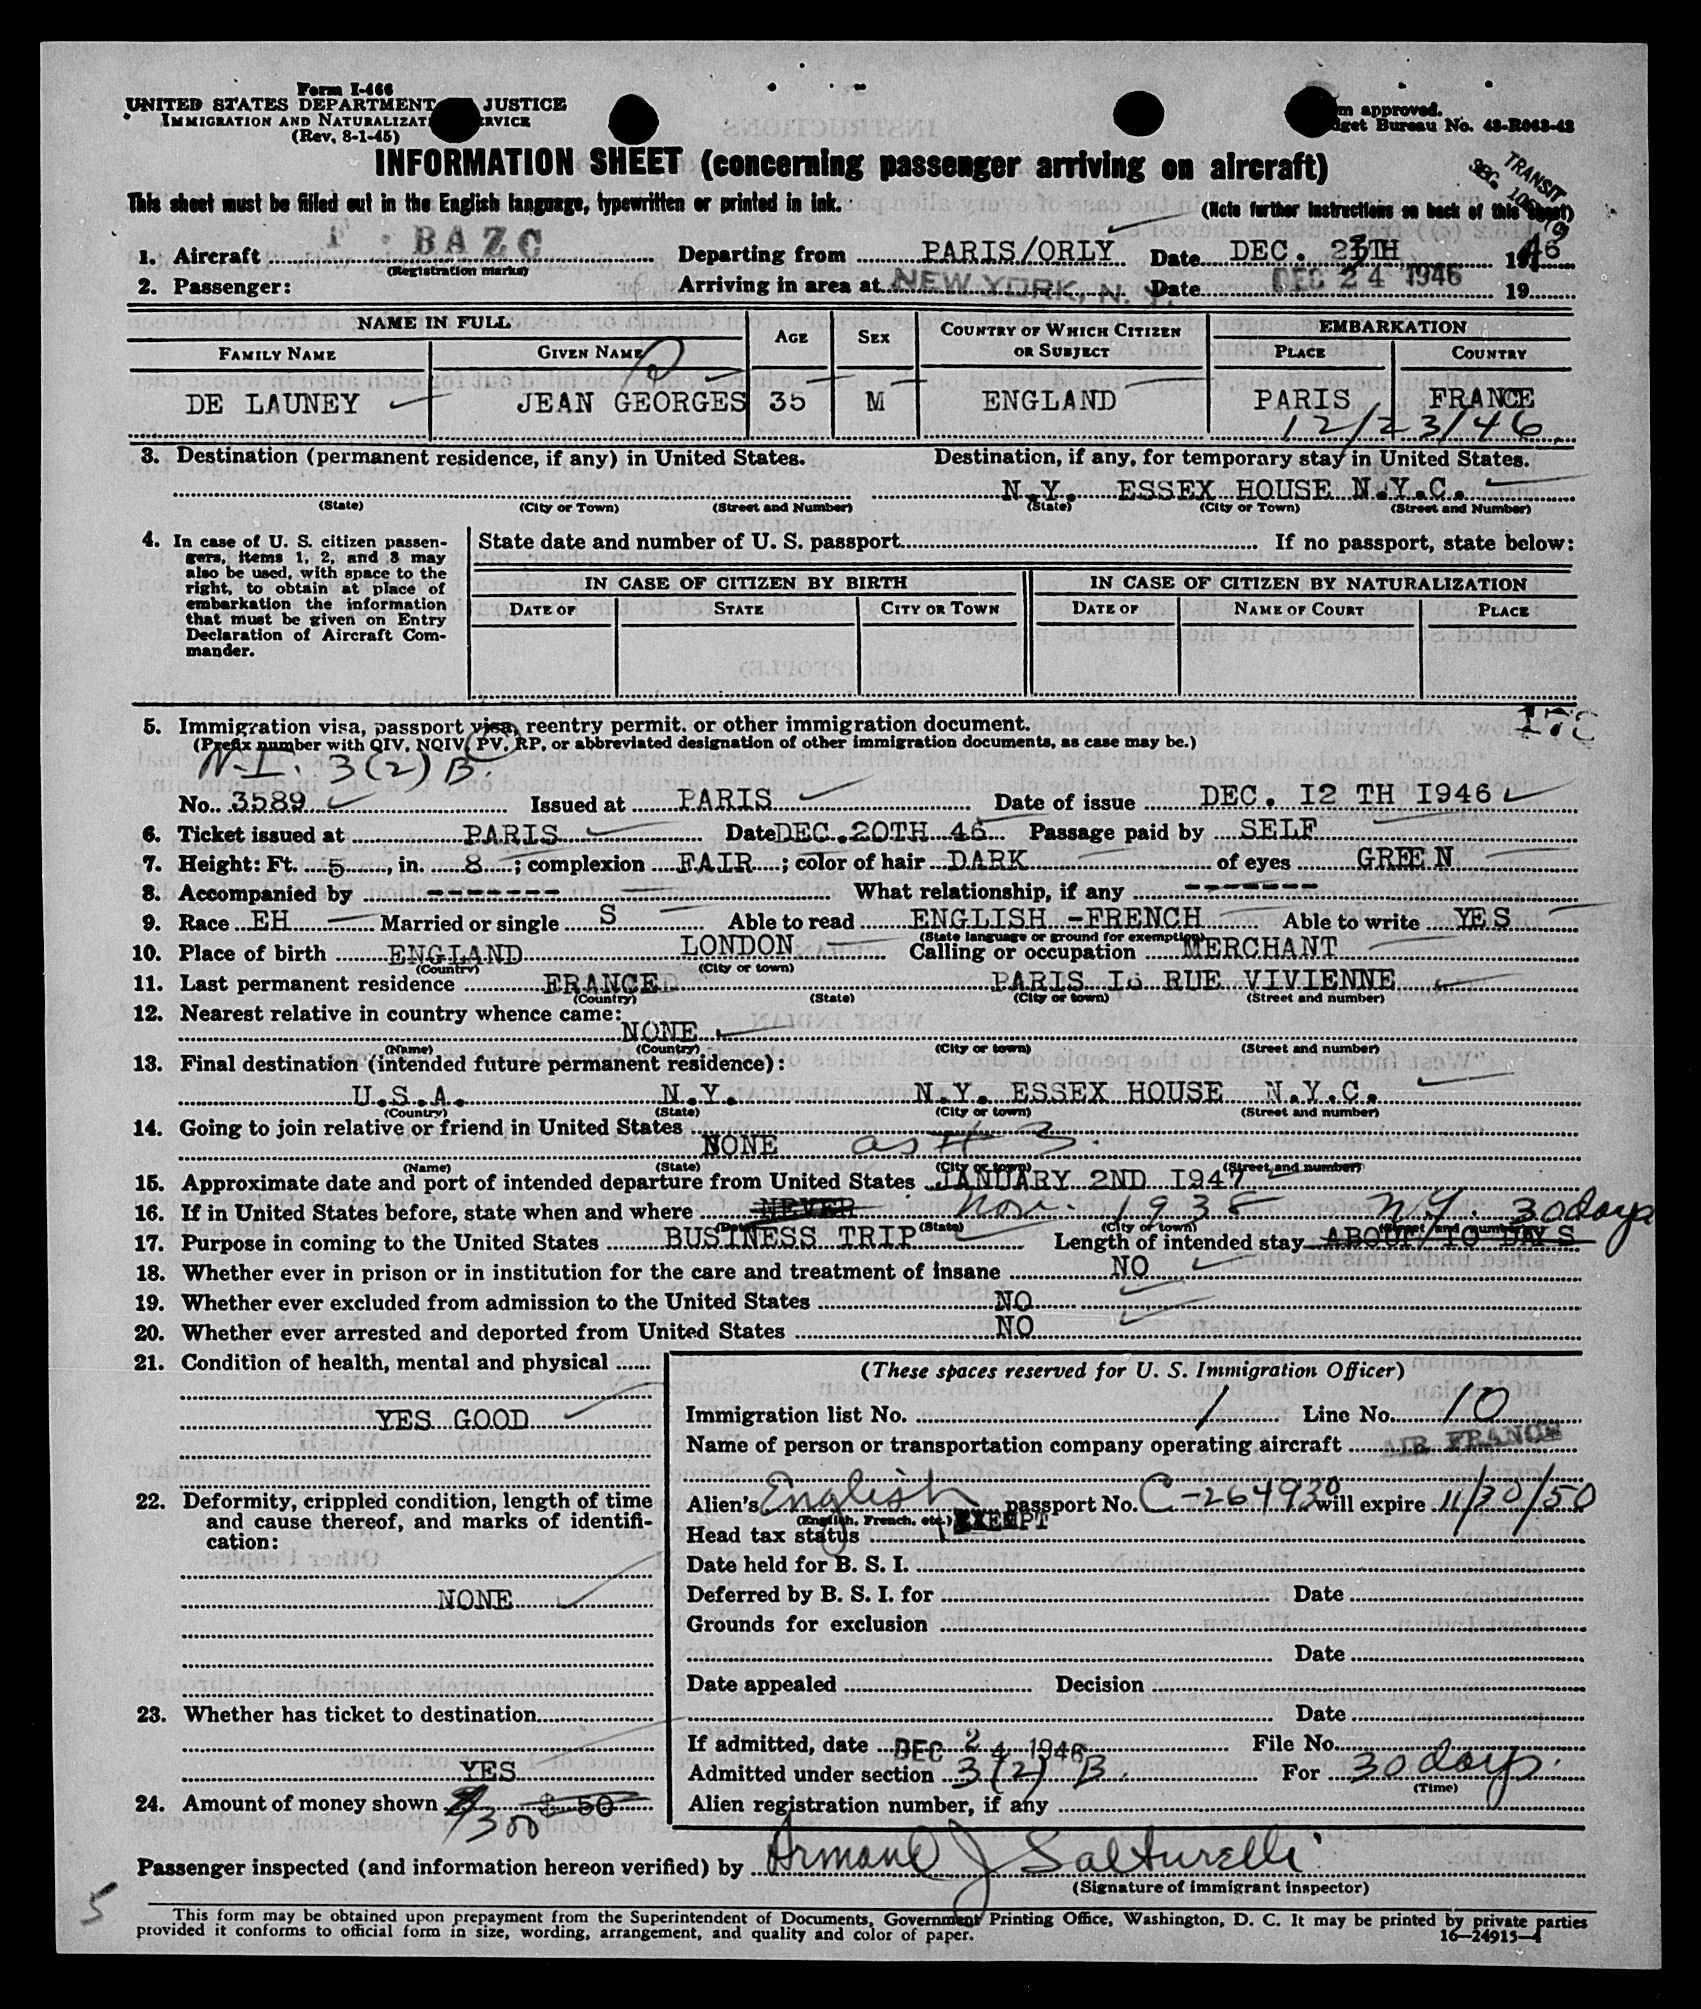 Form I-466
UNITED STATES DEPARTMENT JUSTICE
IMMIGRATION AND NATURALIZATI ERVICE
(Rev. 8-1-45)
m approved.
dget Bureau No. 43-R063-42
INFORMATION SHEET (concerning passenger arriving on aircraft)
TRANSIT
SEC.
This sheet must be filled out in the English language, typewritten or printed in ink.
(Note further instructions on back of this sheet)
1. Aircraft F. BAZC Departing from PARIS/ORLY Date DEC. 23TH 1946
(Registration marks)
2. Passenger: Arriving in area at NEW YORK, N. Y. Date DEC 24 1946 19
NAME IN FULL AGE SEX COUNTRY OF WHICH CITIZEN OR SUBJECT EMBARKATION
FAMILY NAME GIVEN NAME PLACE COUNTRY
DE LAUNEY JEAN GEORGES 35 M ENGLAND PARIS FRANCE
12/23/46
3. Destination (permanent residence, if any) in United States. Destination, if any, for temporary stay in United States.
N.Y. ESSEX HOUSE N.Y.C.
(State) (City or Town) (Street and Number) (State) (City or Town) (Street and Number)
4. In case of U. S. citizen passengers, items 1, 2, and 3 may also be used, with space to the right, to obtain at place of embarkation the information that must be given on Entry Declaration of Aircraft Commander.
State date and number of U. S. passport If no passport, state below:
IN CASE OF CITIZEN BY BIRTH IN CASE OF CITIZEN BY NATURALIZATION
DATE OF STATE CITY OR TOWN DATE OF NAME OF COURT PLACE
5. Immigration visa, passport visa, reentry permit, or other immigration document.
(Prefix number with QIV, NQIV, PV, RP, or abbreviated designation of other immigration documents, as case may be.)
N.I. 3(2)B.
No. 3589 Issued at PARIS Date of issue DEC. I2 TH I946
6. Ticket issued at PARIS Date DEC.20TH 46 Passage paid by SELF
7. Height: Ft. 5, in. 8; complexion FAIR; color of hair DARK of eyes GREEN
8. Accompanied by ------- What relationship, if any -------
9. Race EH Married or single S Able to read ENGLISH -FRENCH Able to write YES
(State language or ground for exemption)
10. Place of birth ENGLAND LONDON Calling or occupation MERCHANT
(Country) (City or town)
11. Last permanent residence FRANCE PARIS I8 RUE VIVIENNE
(Country) (State) (City or town) (Street and number)
12. Nearest relative in country whence came:
NONE
(Name) (Country) (City or town) (Street and number)
13. Final destination (intended future permanent residence):
U.S.A. N.Y. N.Y. ESSEX HOUSE N.Y.C.
(Country) (State) (City or town) (Street and number)
14. Going to join relative or friend in United States
NONE as # 3.
(Name) (State) (City or town) (Street and number)
15. Approximate date and port of intended departure from United States JANUARY 2ND I947
16. If in United States before, state when and where NEVER Nov. 1938 N.Y. 30 days
(Date) (State) (City or town) (Street and number)
17. Purpose in coming to the United States BUSINESS TRIP Length of intended stay ABOUT IO DAYS
18. Whether ever in prison or in institution for the care and treatment of insane NO
19. Whether ever excluded from admission to the United States NO
20. Whether ever arrested and deported from United States NO
21. Condition of health, mental and physical
YES GOOD
22. Deformity, crippled condition, length of time and cause thereof, and marks of identification:
NONE
23. Whether has ticket to destination
YES
24. Amount of money shown $ 50
300
(These spaces reserved for U. S. Immigration Officer)
Immigration list No. 1 Line No. 10
Name of person or transportation company operating aircraft AIR FRANCE
Alien's English passport No. C-264930 will expire 11/30/50
(English, French, etc.)
Head tax status EXEMPT
Date held for B. S. I.
Deferred by B. S. I. for Date
Grounds for exclusion
Date
Date appealed Decision
Date
If admitted, date DEC 24 1946 File No.
Admitted under section 3(2) B. For 30 days.
(Time)
Alien registration number, if any
Passenger inspected (and information hereon verified) by Armand J Salturelli
(Signature of immigrant inspector)
5
This form may be obtained upon prepayment from the Superintendent of Documents, Government Printing Office, Washington, D. C. It may be printed by private parties
provided it conforms to official form in size, wording, arrangement, and quality and color of paper.
16—24915-1